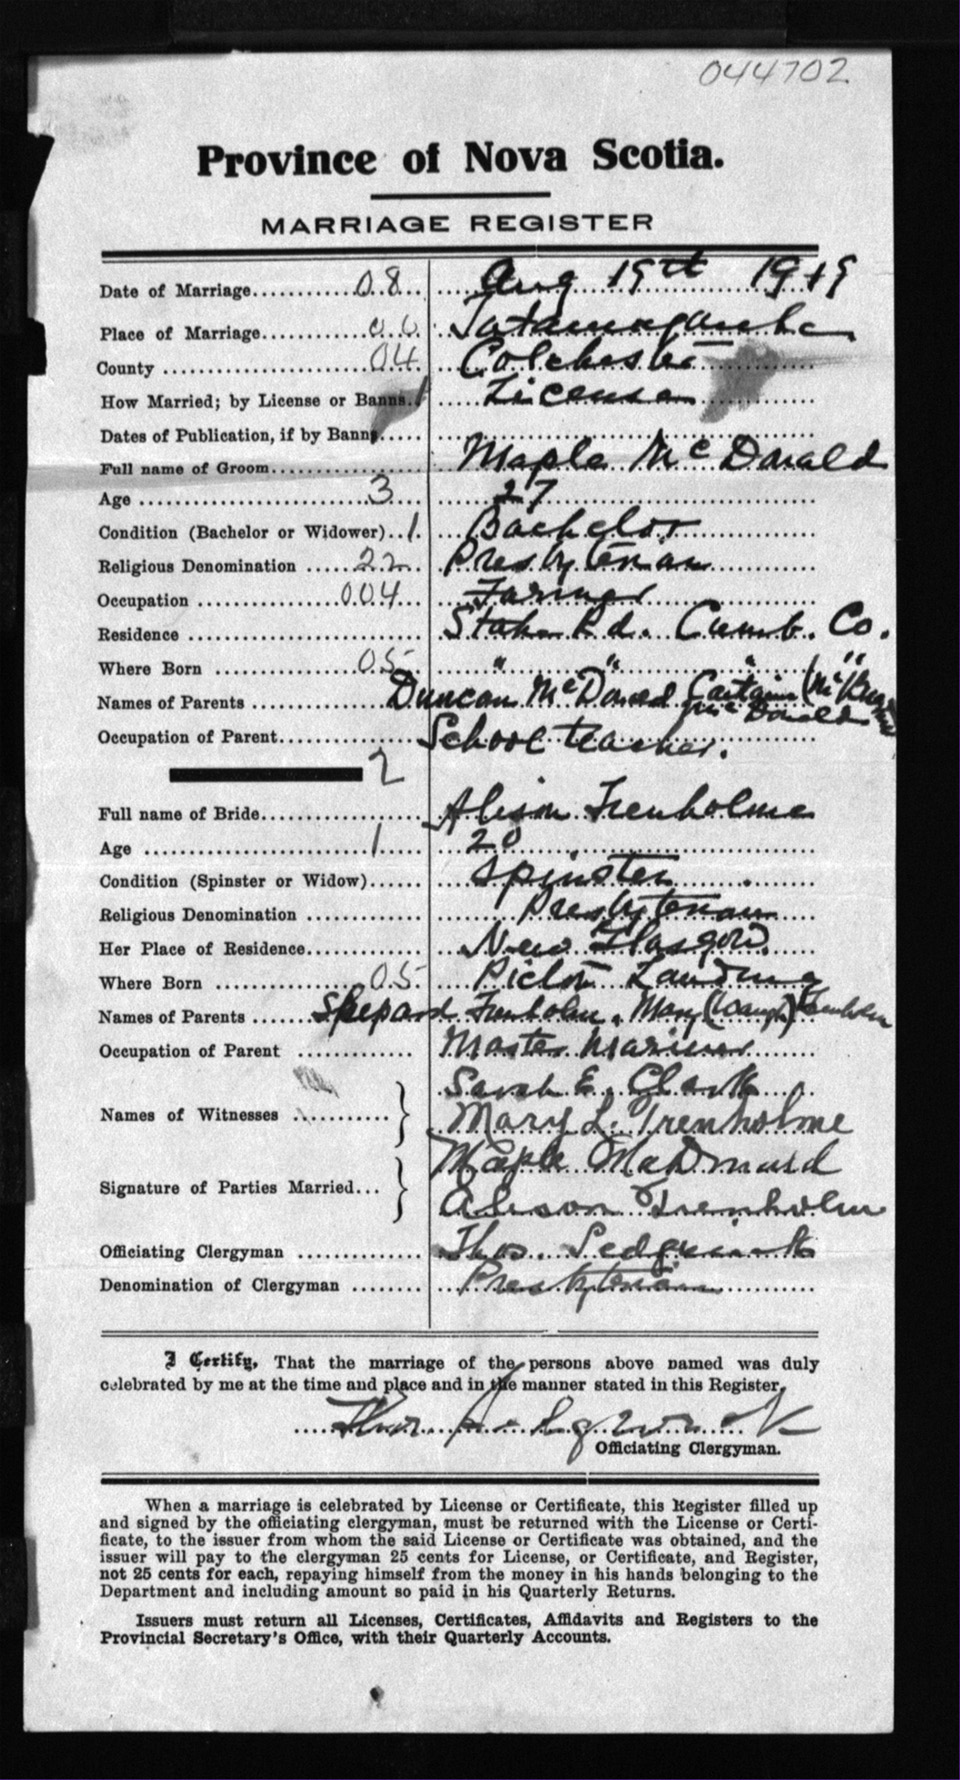 044702
Province of Nova Scotia.
MARRIAGE REGISTER
Date of Marriage 08 Aug 19th 1919
Place of Marriage Tatamagouche
County 04 Colchester
How Married; by License or Banns 1 License
Dates of Publication, if by Banns
Full name of Groom Maple McDonald
Age 3 27
Condition (Bachelor or Widower) 1 Bachelor
Religious Denomination 22 Presbyterian
Occupation 004 Farmer
Residence Rd. Cumb. Co.
Where Born 05 " " " "
Names of Parents Duncan McDonald McDonald
Occupation of Parent School teacher.
2
Full name of Bride Alison Trenholme
Age 1 20
Condition (Spinster or Widow) Spinster
Religious Denomination Presbyterian
Her Place of Residence New Glasgow
Where Born 05 Pictou Landing
Names of Parents Shepard Trenholm, Mary (Waugh) Trenholm
Occupation of Parent Master Mariner
Sarah E. Clark
Names of Witnesses } Mary L. Trenholme
Maple McDonald
Signature of Parties Married } Alison Trenholm
Officiating Clergyman Thos. Sedgwick
Denomination of Clergyman Presbyterian
I Certify, That the marriage of the persons above named was duly
celebrated by me at the time and place and in the manner stated in this Register.
Thos Sedgwick
Officiating Clergyman.
When a marriage is celebrated by License or Certificate, this Register filled up
and signed by the officiating clergyman, must be returned with the License or Certi-
ficate, to the issuer from whom the said License or Certificate was obtained, and the
issuer will pay to the clergyman 25 cents for License, or Certificate, and Register,
not 25 cents for each, repaying himself from the money in his hands belonging to the
Department and including amount so paid in his Quarterly Returns.
Issuers must return all Licenses, Certificates, Affidavits and Registers to the
Provincial Secretary's Office, with their Quarterly Accounts.